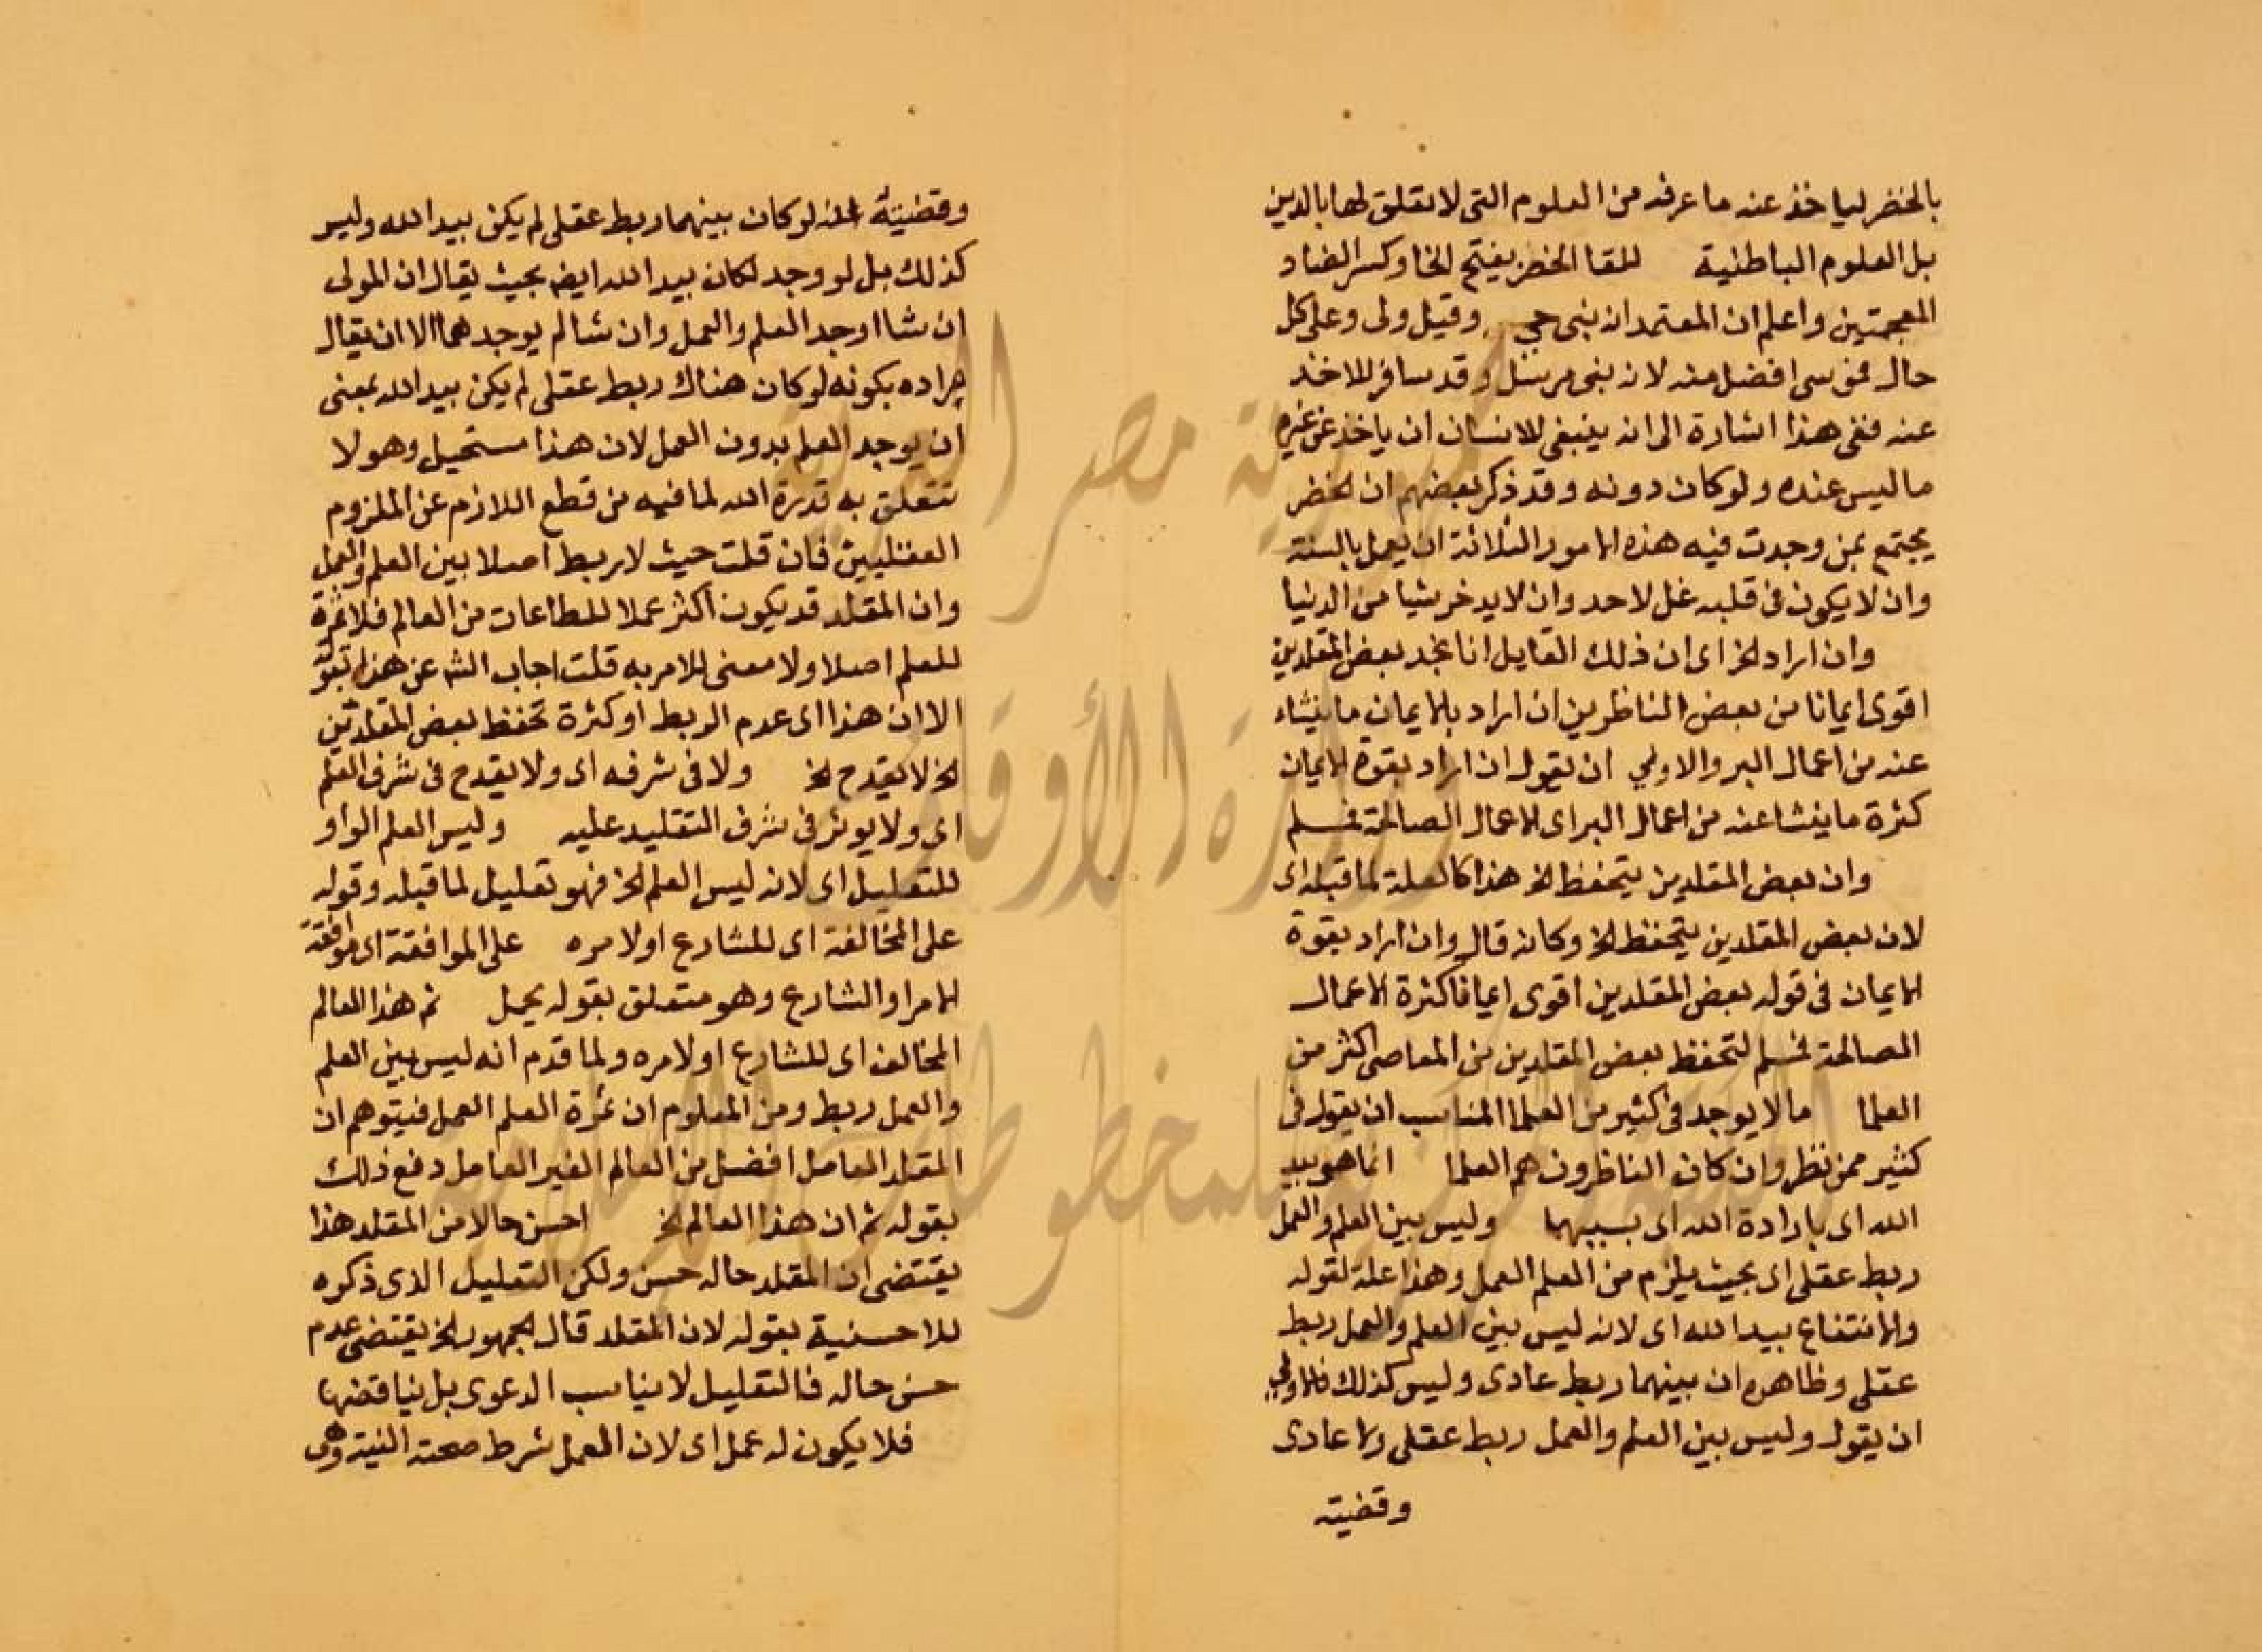 بالخضر لياخذ عنه ما عرفه من العلوم التى لا تعلق لها بالدين
بل العلوم الباطنية للقا الخضر بفتح الخا وكسر الضاد
المعجمتين واعلم ان المعتمد انه نبى حي وقيل ولى وعلى كل
حال فموسى افضل منه لانه نبى مرسل وقد سافر للاخذ
عنه ففى هذا اشارة الى انه ينبغى للانسان ان ياخذ عن غيره
ما ليس عنده ولو كان دونه وقد ذكر بعضهم ان الخضر
يجتمع بمن وجدت فيه هذه الامور الثلاثة ان يعمل بالسنة
وان لا يكون فى قلبه غل لاحد وان لا يدخر شيا من الدنيا
وان اراد الخ اى ان ذلك القايل انا نجد بعض المقلدين
اقوى ايمانا من بعض الناظرين ان اراد بالايمان ما ينشاء
عنه من اعمال البر والاولي ان يقول ان اراد بقوة الايمان
كثرة ما ينشا عنه من اعمال البر اى الاعمال الصالحة فمسلم
وان بعض المقلدين يتحفظ الخ هذا كالعلة لما قبله اى
لان بعض المقلدين يتحفظ الخ وكانه قال وان اراد بقوة
الايمان فى قوله بعض المقلدين اقوى ايمانا كثرة الاعمال
الصالحة فمسلم لتحفظ بعض المقلدين من المعاصى اكثر من
العلما ما لا يوجد فى كثير من العلما المناسب ان يقول فى
كثير ممن نظر وان كان الناظرون هم العلما انما هو بيد
الله اى بارادة الله اى بسببها وليس بين العلم والعمل
ربط عقلى اى بحيث يلزم من العلم العمل وهذا علة لقوله
والانتفاع بيد الله اى لانه ليس بين العلم والعمل ربط
عقلى وظاهره ان بينهما ربط عادى وليس كذلك فالاولي
ان يقول وليس بين العلم والعمل ربط عقلى ولا عادى
وقضيته
وقضيتة انه لو كان بينهما ربط عقلى لم يكن بيد الله وليس
كذلك بل لو وجد لكان بيد الله ايضا بحيث يقال ان المولى
ان شا اوجد العلم والعمل وان شا لم يوجدهما الا ان يقال
مراده بكونه لو كان هناك ربط عقلى لم يكن بيد الله بمعنى
ان يوجد العلم بدون العمل لان هذا مستحيل وهو لا
تتعلق به قدرة الله لما فيه من قطع اللازم عن الملزوم
العقليين فان قلت حيث لا ربط اصلا بين العلم والعمل
وان المقلد قد يكون اكثر عملا للطاعات من العالم فلا ثمرة
للعلم اصلا ولا معنى للامر به قلت اجاب الش عن هذا بقوله
الا ان هذا اى عدم الربط او كثرة تحفظ بعض المقلدين
الخ لا يقدح الخ ولا فى شرفه اى ولا يقدح فى شرف العلم
اى ولا يوثر فى شرف التقليد عليه وليس العلم الواو
للتعليل اى لانه ليس العلم الخ فهو تعليل لما قبله وقوله
على المخالفة اى للشارع او لامره على الموافقة اى موافقة
الامر او الشارع وهو متعلق بقوله يحمل ثم هذا العالم
المخالف اى للشارع او لامره ولما قدم انه ليس بين العلم
والعمل ربط ومن المعلوم ان ثمرة العلم العمل فيتوهم ان
المقلد العامل افضل من العالم الغير العامل دفع ذلك
بقوله ثم ان هذا العالم الخ احسن حالا من المقلد هذا
يقتضى ان المقلد حاله حسن ولكن التعليل الذى ذكره
للاحسنية بقوله لان المقلد قال الجمهور الخ يقتضى عدم
حسن حاله فالتعليل لا يناسب الدعوى بل يناقضها
فلا يكون له عمل اى لان العمل شرط صحته النية وهى
جمهورية مصر العربية
وزارة الأوقاف
المكتبة المركزية للمخطوطات الإسلامية